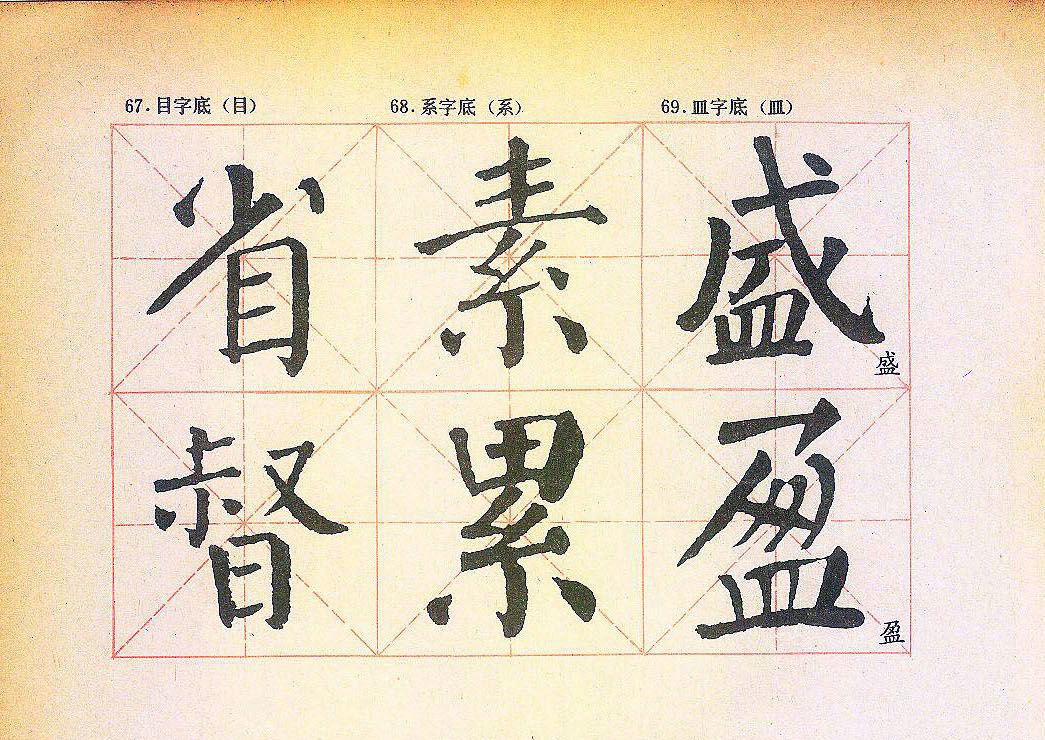 67.目字底（目） 68.系字底（系） 69.皿字底（皿）
省 素 盛
盛
督 累 盈
盈